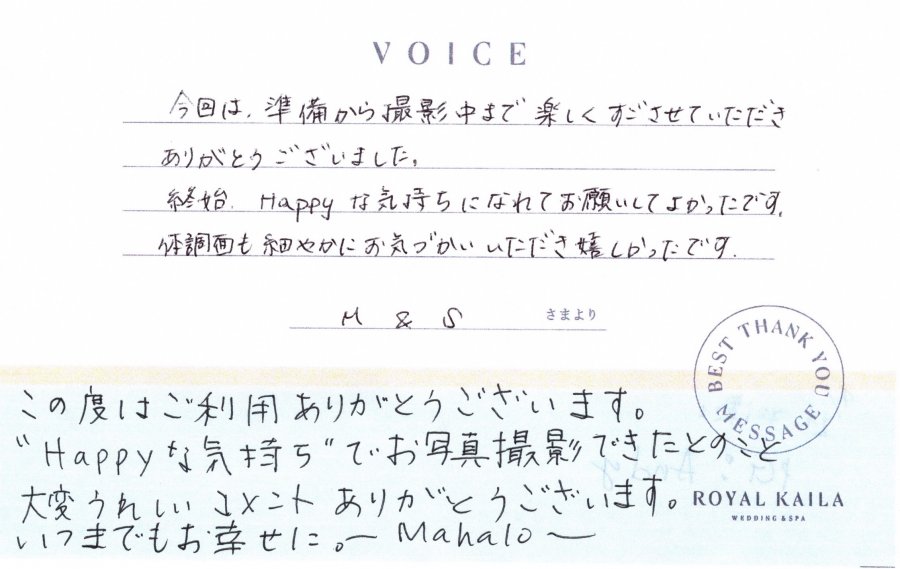 VOICE
今回は、準備から撮影中まで楽しくすごさせていただき
ありがとうございました。
終始、Happyな気持ちになれてお願いしてよかったです。
体調面も細やかにお気づかいいただき嬉しかったです。
M & S さまより
BEST THANK YOU MESSAGE
この度はご利用ありがとうございます。
“Happyな気持ち”でお写真撮影できたとのこと
大変うれしいコメントありがとうございます。
ROYAL KAILA
WEDDING & SPA
いつまでもお幸せに。〜Mahalo〜